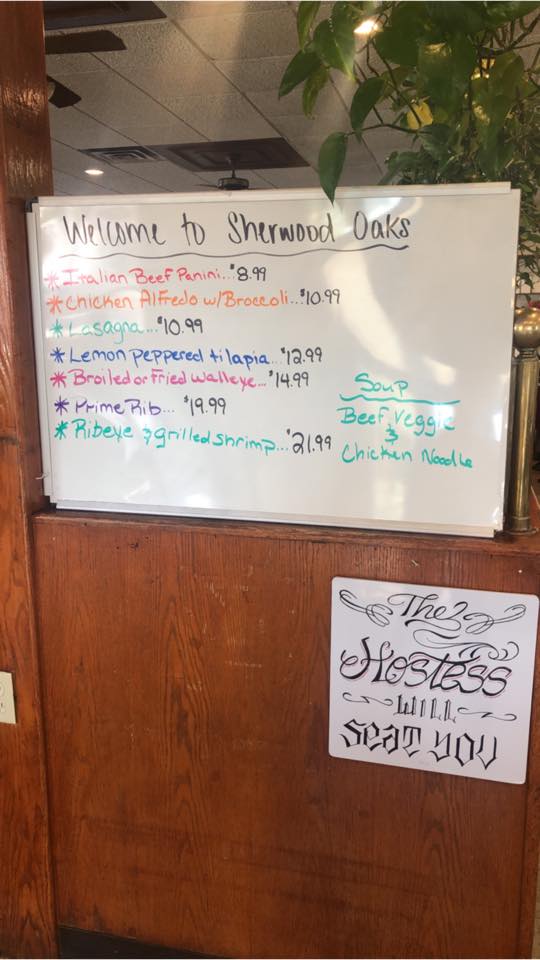 Welcome to Sherwood Oaks
* Italian Beef Panini...$8.99
* Chicken Alfredo w/Broccoli...$10.99
* Lasagna...$10.99
* Lemon peppered tilapia...$12.99
* Broiled or Fried Walleye...$14.99
* Prime Rib... $19.99
* Ribeye & grilled shrimp...$21.99
Soup
Beef Veggie
&
Chicken Noodle
The
Hostess
WILL
Seat you